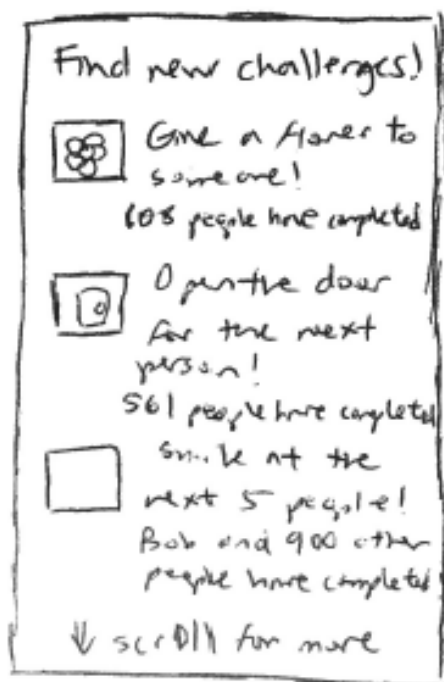 Find new challenges!
Give a flower to
someone!
608 people have completed
Open the door
for the next
person!
561 people have completed
Smile at the
next 5 people!
Bob and 900 other
people have completed
↓ scroll for more